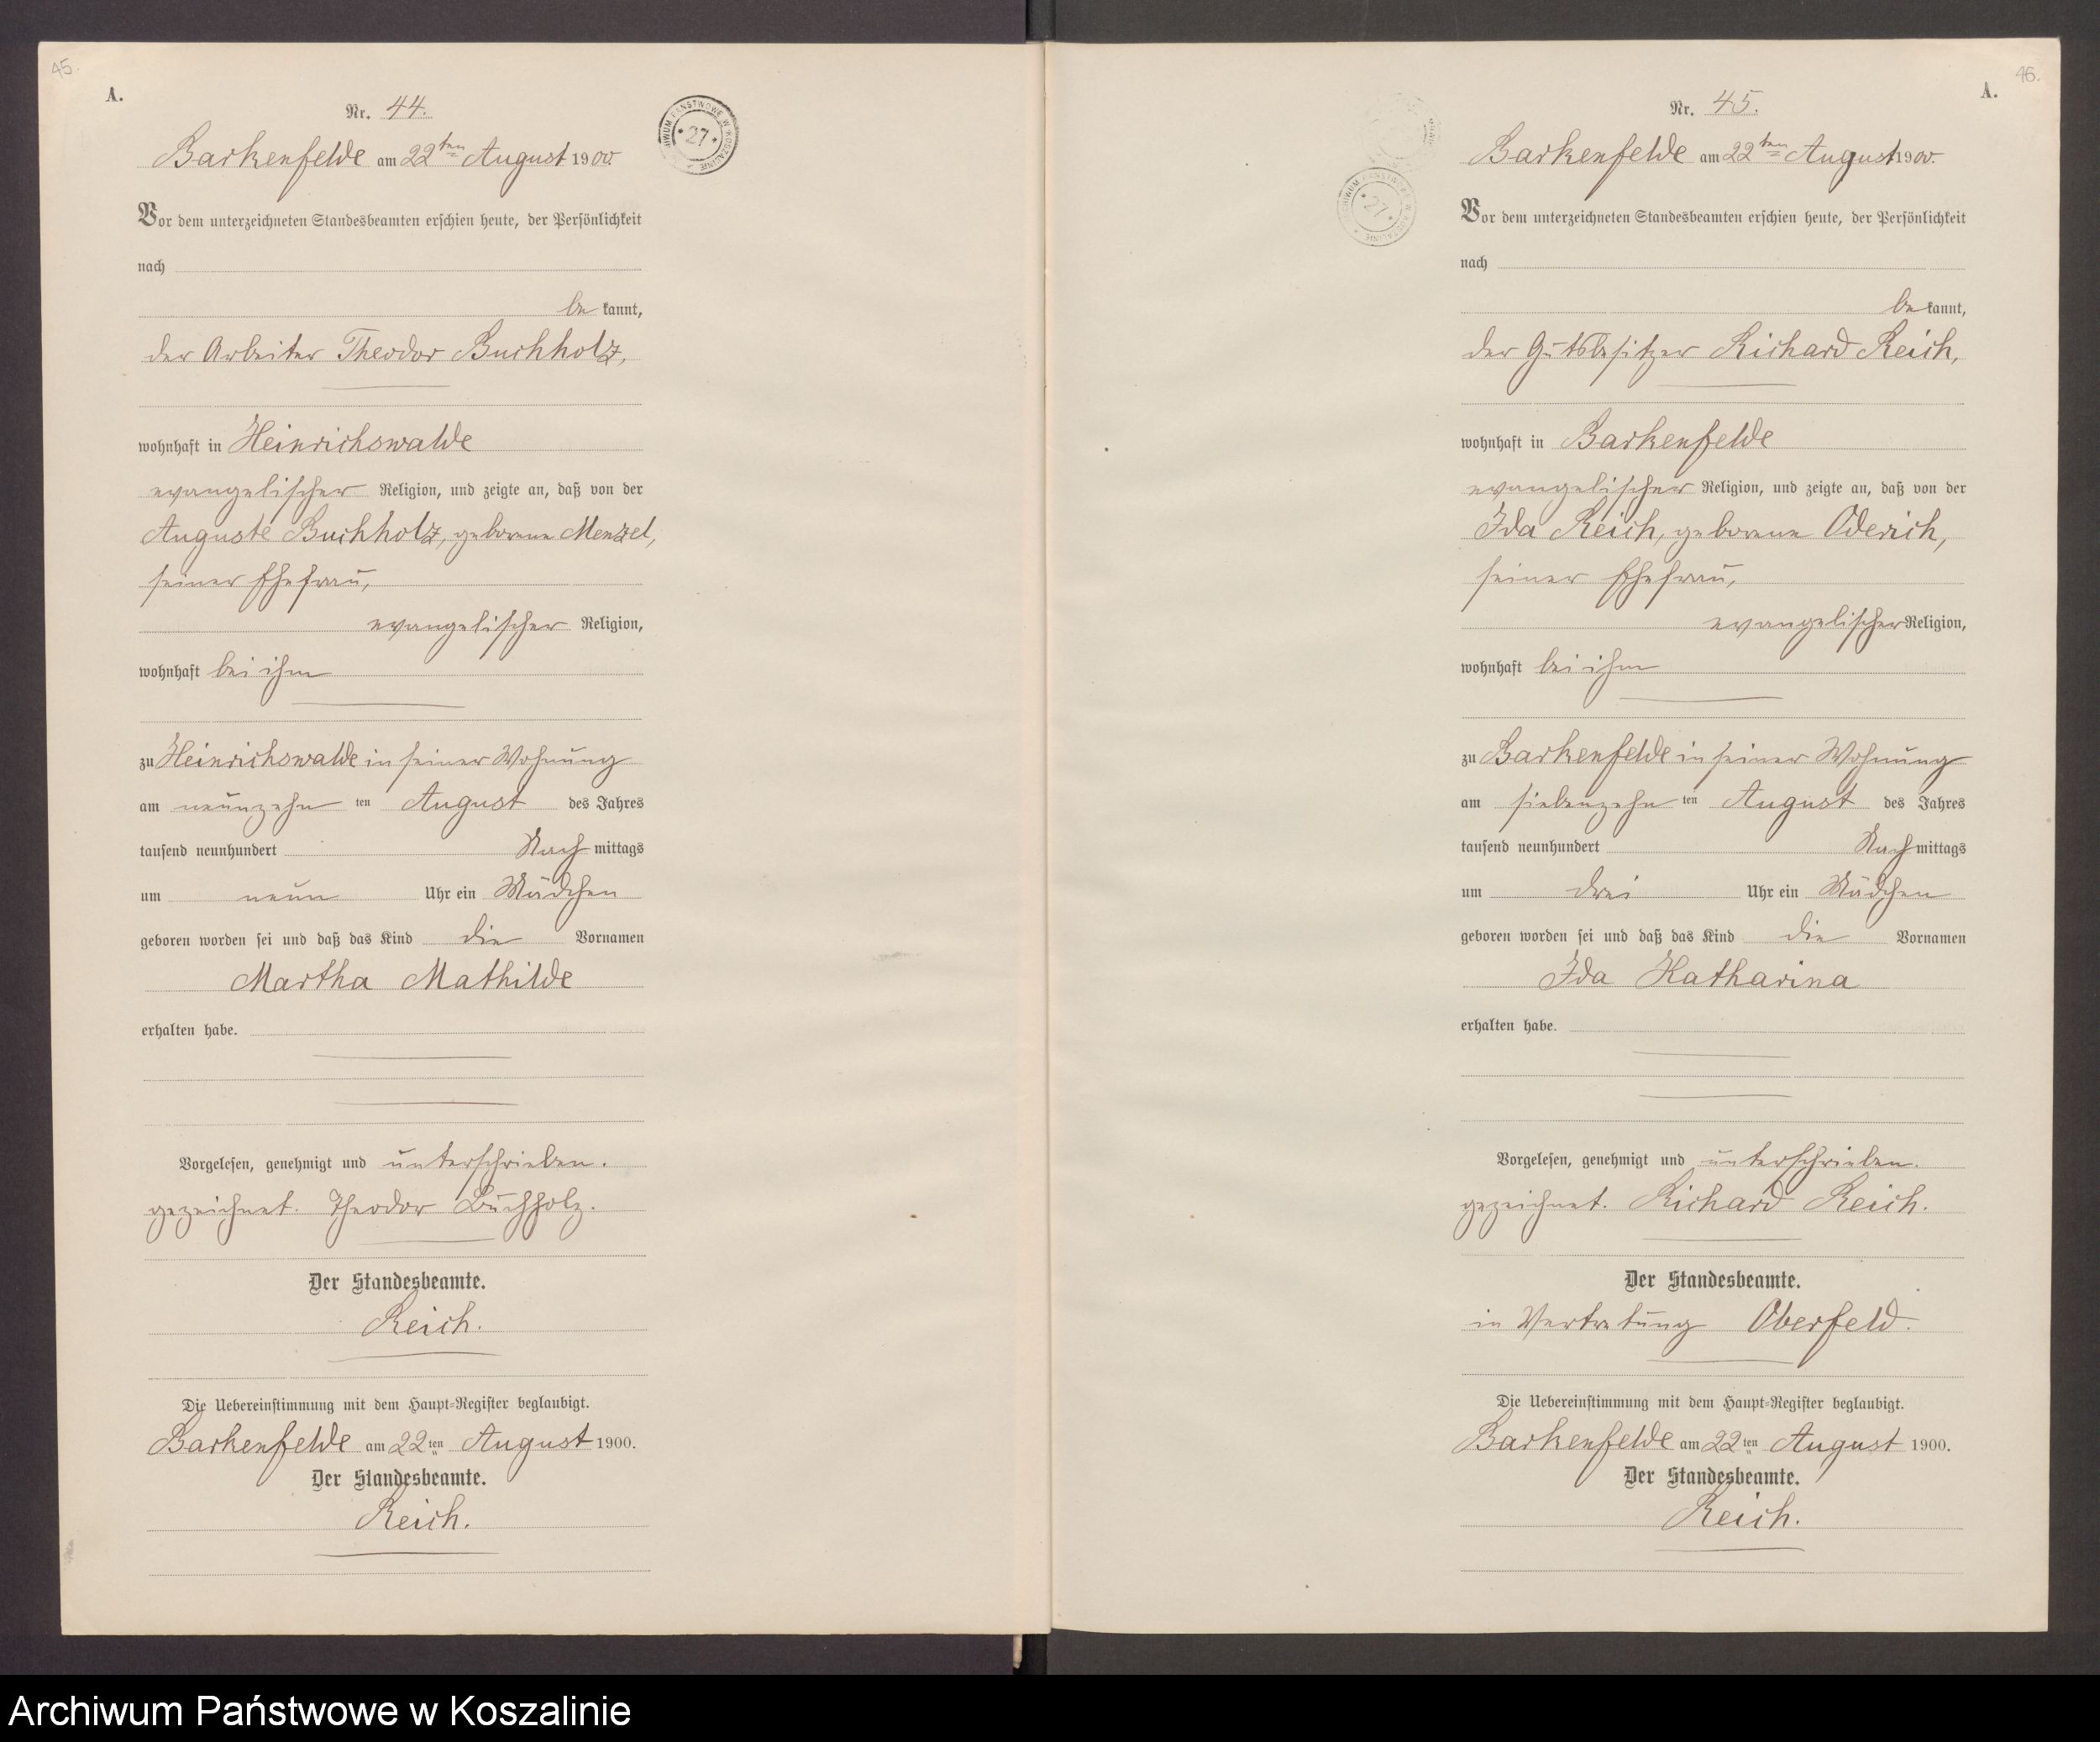 45.
A.
Nr. 44.
ARCHIWUM PAŃSTWOWE W KOSZALINIE * 27 *
Barkenfelde am 22ten August 1900
Vor dem unterzeichneten Standesbeamten erschien heute, der Persönlichkeit
nach
be kannt,
der Arbeiter Theodor Buchholz,
wohnhaft in Heinrichswalde
evangelischer Religion, und zeigte an, daß von der
Auguste Buchholz, geborene Menzel,
seiner Ehefrau,
evangelischer Religion,
wohnhaft bei ihm
zu Heinrichswalde in seiner Wohnung
am neunzehn ten August des Jahres
tausend neunhundert Nach mittags
um neun Uhr ein Mädchen
geboren worden sei und daß das Kind die Vornamen
Martha Mathilde
erhalten habe.
Vorgelesen, genehmigt und unterschrieben.
gezeichnet. Theodor Buchholz.
Der Standesbeamte.
Reich.
Die Uebereinstimmung mit dem Haupt-Register beglaubigt.
Barkenfelde am 22 ten August 1900.
Der Standesbeamte.
Reich.
46.
A.
Nr. 45.
ARCHIWUM PAŃSTWOWE W KOSZALINIE * 27 *
Barkenfelde am 22ten August 1900.
Vor dem unterzeichneten Standesbeamten erschien heute, der Persönlichkeit
nach
be kannt,
der Gutsbesitzer Richard Reich,
wohnhaft in Barkenfelde
evangelischer Religion, und zeigte an, daß von der
Ida Reich, geborene Oderich,
seiner Ehefrau,
evangelischer Religion,
wohnhaft bei ihm
zu Barkenfelde in seiner Wohnung
am siebenzehn ten August des Jahres
tausend neunhundert Nach mittags
um drei Uhr ein Mädchen
geboren worden sei und daß das Kind die Vornamen
Ida Katharina
erhalten habe.
Vorgelesen, genehmigt und unterschrieben.
gezeichnet. Richard Reich.
Der Standesbeamte.
in Vertretung Oberfeld.
Die Uebereinstimmung mit dem Haupt-Register beglaubigt.
Barkenfelde am 22 ten August 1900.
Der Standesbeamte.
Reich.
Archiwum Państwowe w Koszalinie